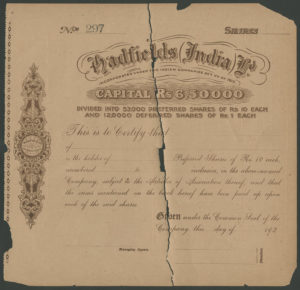 No. 297 SHARES
Hadfields (India) Ld
INCORPORATED UNDER THE INDIAN COMPANIES ACT VII OF 1913
CAPITAL Rs 6,50000
DIVIDED INTO 53,000 PREFERRED SHARES OF Rs 10 EACH
AND 1,20000 DEFERRED SHARES OF Rs 1 EACH
This is to Certify that
of
is the holder of Preferred Shares of Rs 10 each
numbered to inclusive, in the above-named
Company, subject to the Articles of Association thereof, and that
the sums mentioned on the back hereof have been paid up upon
each of the said shares
Given under the Common Seal of the
Company this day of 192
Managing Agents
Directors